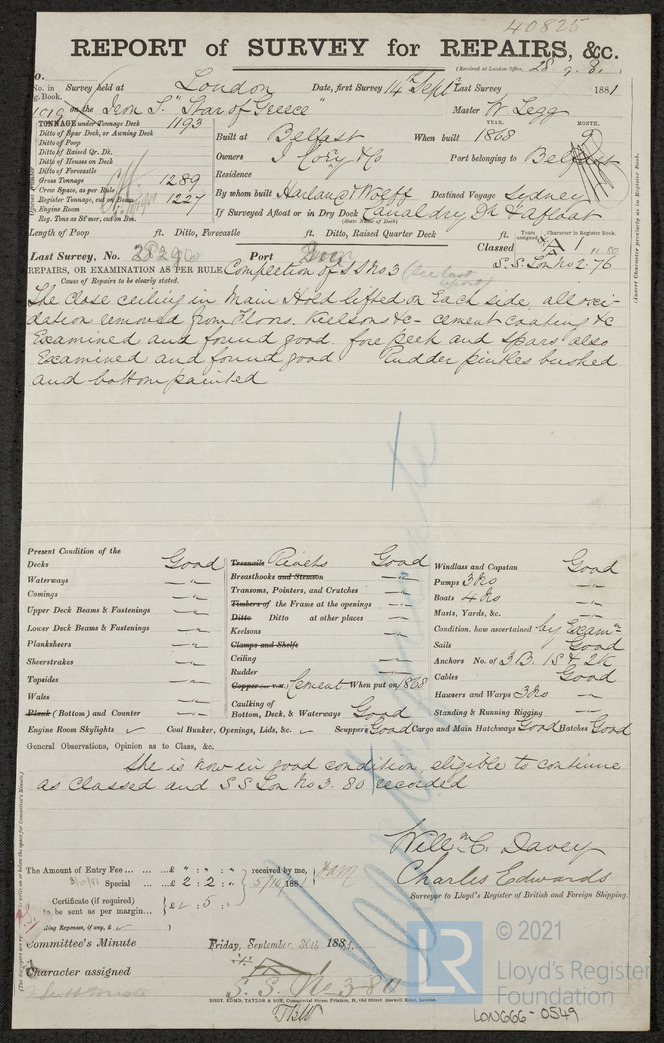 40825
REPORT of SURVEY for REPAIRS, &c.
(Received at London Office, 28 . 9 . 8 .
No. in Survey held at London Date, first Survey 14th Sept Last Survey 1881
g. Book.
1019 on the Iron S. "Star of Greece" Master W. Legg
TONNAGE under Tonnage Deck 1193
Ditto of Spar Deck, or Awning Deck
Ditto of Poop
Ditto of Raised Qr. Dk.
Ditto of House on Deck
Ditto of Forecastle
Gross Tonnage 1289
Crew Space, as per Rule
Register Tonnage, cut on Beam 1227
Engine Room
Reg. Tons as St'mer, cut on Bm.
YEAR. MONTH.
Built at Belfast When built 1868 9
Owners J Cory & Co Port belonging to Belfast
Residence
By whom built Harland & Wolff Destined Voyage Sydney
If Surveyed Afloat or in Dry Dock Canal dry Dk & afloat
(State Name of Dock)
Length of Poop ft. Ditto, Forecastle ft. Ditto, Raised Quarter Deck ft.
Years assigned Character in Register Book.
Classed A 1 11.80
S.S. Lon No 2-76
Last Survey, No. Port
REPAIRS, OR EXAMINATION AS PER RULE Completion of SS No 3 (see last report)
Cause of Repairs to be clearly stated.
The Close ceiling in Main Hold lifted on Each side, all oxi-
dation removed from Floors, Keelsons &c - cement coating &c
Examined and found good. fore peek and Spars also
Examined and found good Rudder pintles bushed
and bottom painted
Present Condition of the
Decks Good
Waterways "
Comings "
Upper Deck Beams & Fastenings "
Lower Deck Beams & Fastenings "
Planksheers "
Sheerstrakes "
Topsides "
Wales
Plank (Bottom) and Counter "
Treenails Rivets Good
Breasthooks and Stemson "
Transoms, Pointers, and Crutches "
Timbers of the Frame at the openings "
Ditto Ditto at other places "
Keelsons "
Clamps and Shelfs
Ceiling "
Rudder "
Copper Cement When put on 1868
Caulking of
Bottom, Deck, & Waterways Good
Windlass and Capstan Good
Pumps 3 No "
Boats 4 No "
Masts, Yards, &c. "
Condition, how ascertained by Examn
Sails Good
Anchors No. of 3 B. 1 S & 2 K
Cables Good
Hawsers and Warps 3 No "
Standing & Running Rigging "
Engine Room Skylights ✓ Coal Bunker, Openings, Lids, &c. ✓ Scuppers Good Cargo and Main Hatchways Good Hatches Good
General Observations, Opinion as to Class, &c.
She is now in good condition, eligible to continue
as Classed and S S Lon No 3. 80 recorded
Will m C. Davey
Charles Edwards
Surveyor to Lloyd's Register of British and Foreign Shipping.
The Amount of Entry Fee ... ... £ " : " : " received by me,
Special ... ... £ 2 : 2 : " 5/10/1881
Certificate (if required)
to be sent as per margin... £ ✓ : 5 :
lling Expenses, if any, £
Committee's Minute Friday, September 30th 1881.
Character assigned
S. S. No 3-80
ROBT. EDMD. TAYLOR & SON, Commercial Steam Printers, 19, Old Street Goswell Road, London.
(Insert Character precisely as in Register Book.
LR © 2021
Lloyd's Register
Foundation
LON666-0549